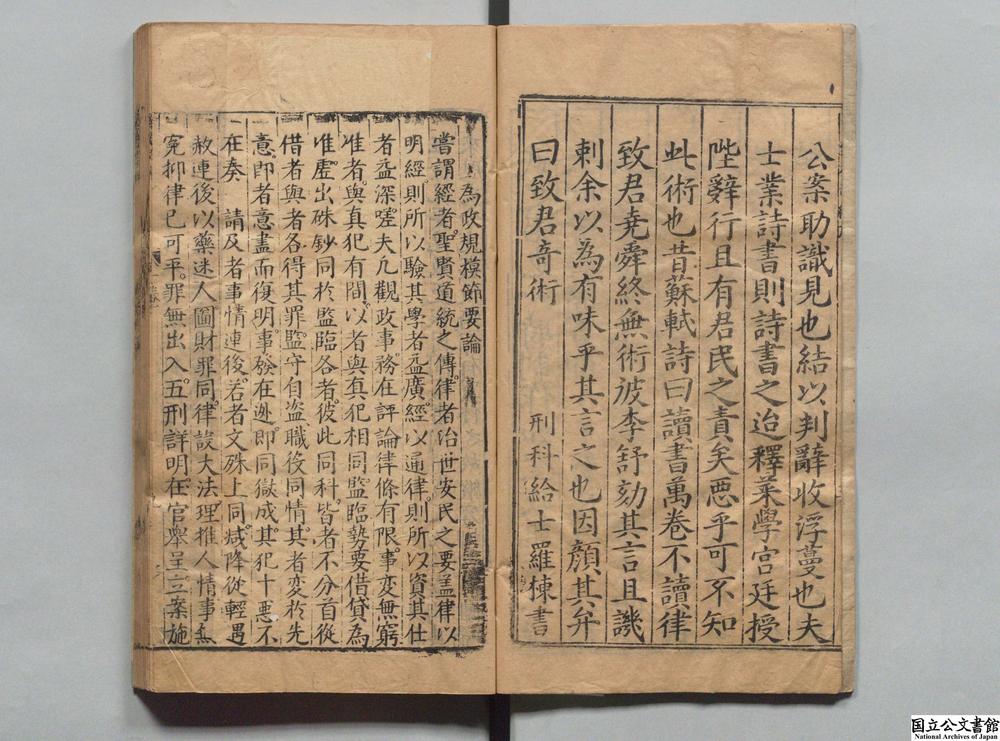 公案助識見也結以判辭收浮蔓也夫
士業詩書則詩書之迨釋菜學宮廷授
陛辭行且有君民之責矣惡乎可不知
此術也昔蘇軾詩曰讀書萬卷不讀律
致君堯舜終無術彼李舒劾其言且譏
刺余以為有味乎其言之也因顏其弁
曰致君奇術
刑科給士羅棟書
為政規模節要論
嘗謂經者聖賢道統之傳律者治世安民之要盖律以
明經則所以驗其學者益廣經以通律則所以資其仕
者益深嗟夫凡觀政事務在評論律條有限事變無窮
准者與真犯有間以者與真犯相同監臨勢要借貸為
准虛出硃鈔同於監臨各者彼此同科皆者不分首從
借者與者各得其罪監守自盗職役同情其者変於先
意即者意盡而復明事發在逃即同獄成其犯十悪不
在奏 請及者事情連後若者文殊上同减降從輕遇
赦連後以藥迷人圖財罪同律設大法理推人情事無
冤抑律已可平罪無出入五刑詳明在官舉呈立案施
国立公文書館
National Archives of Japan